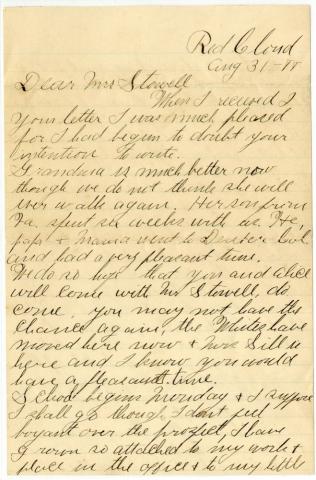 Red Cloud
Aug 31-88
Dear Mrs Stowell
When I received
your letter I was much pleased
for I had begun to doubt your
intention to write.
Grandma is much better now
though we do not think she will
ever walk again. Her son from
Va. spent six weeks with us. He,
papa & Mama went to Denver Col.
and had a very pleasant time.
We do so hope that you and Alice
will come with Mr Stowell, do
come. you may not have this
chance again, the Whites have
moved here now & Mrs Sill is
here and I know you would
have a pleasant time.
School begins Monday & I suppose
I shall go though I dont feel
boyant over the prospect, I have
grown so attached to my work &
place in the office & to my little